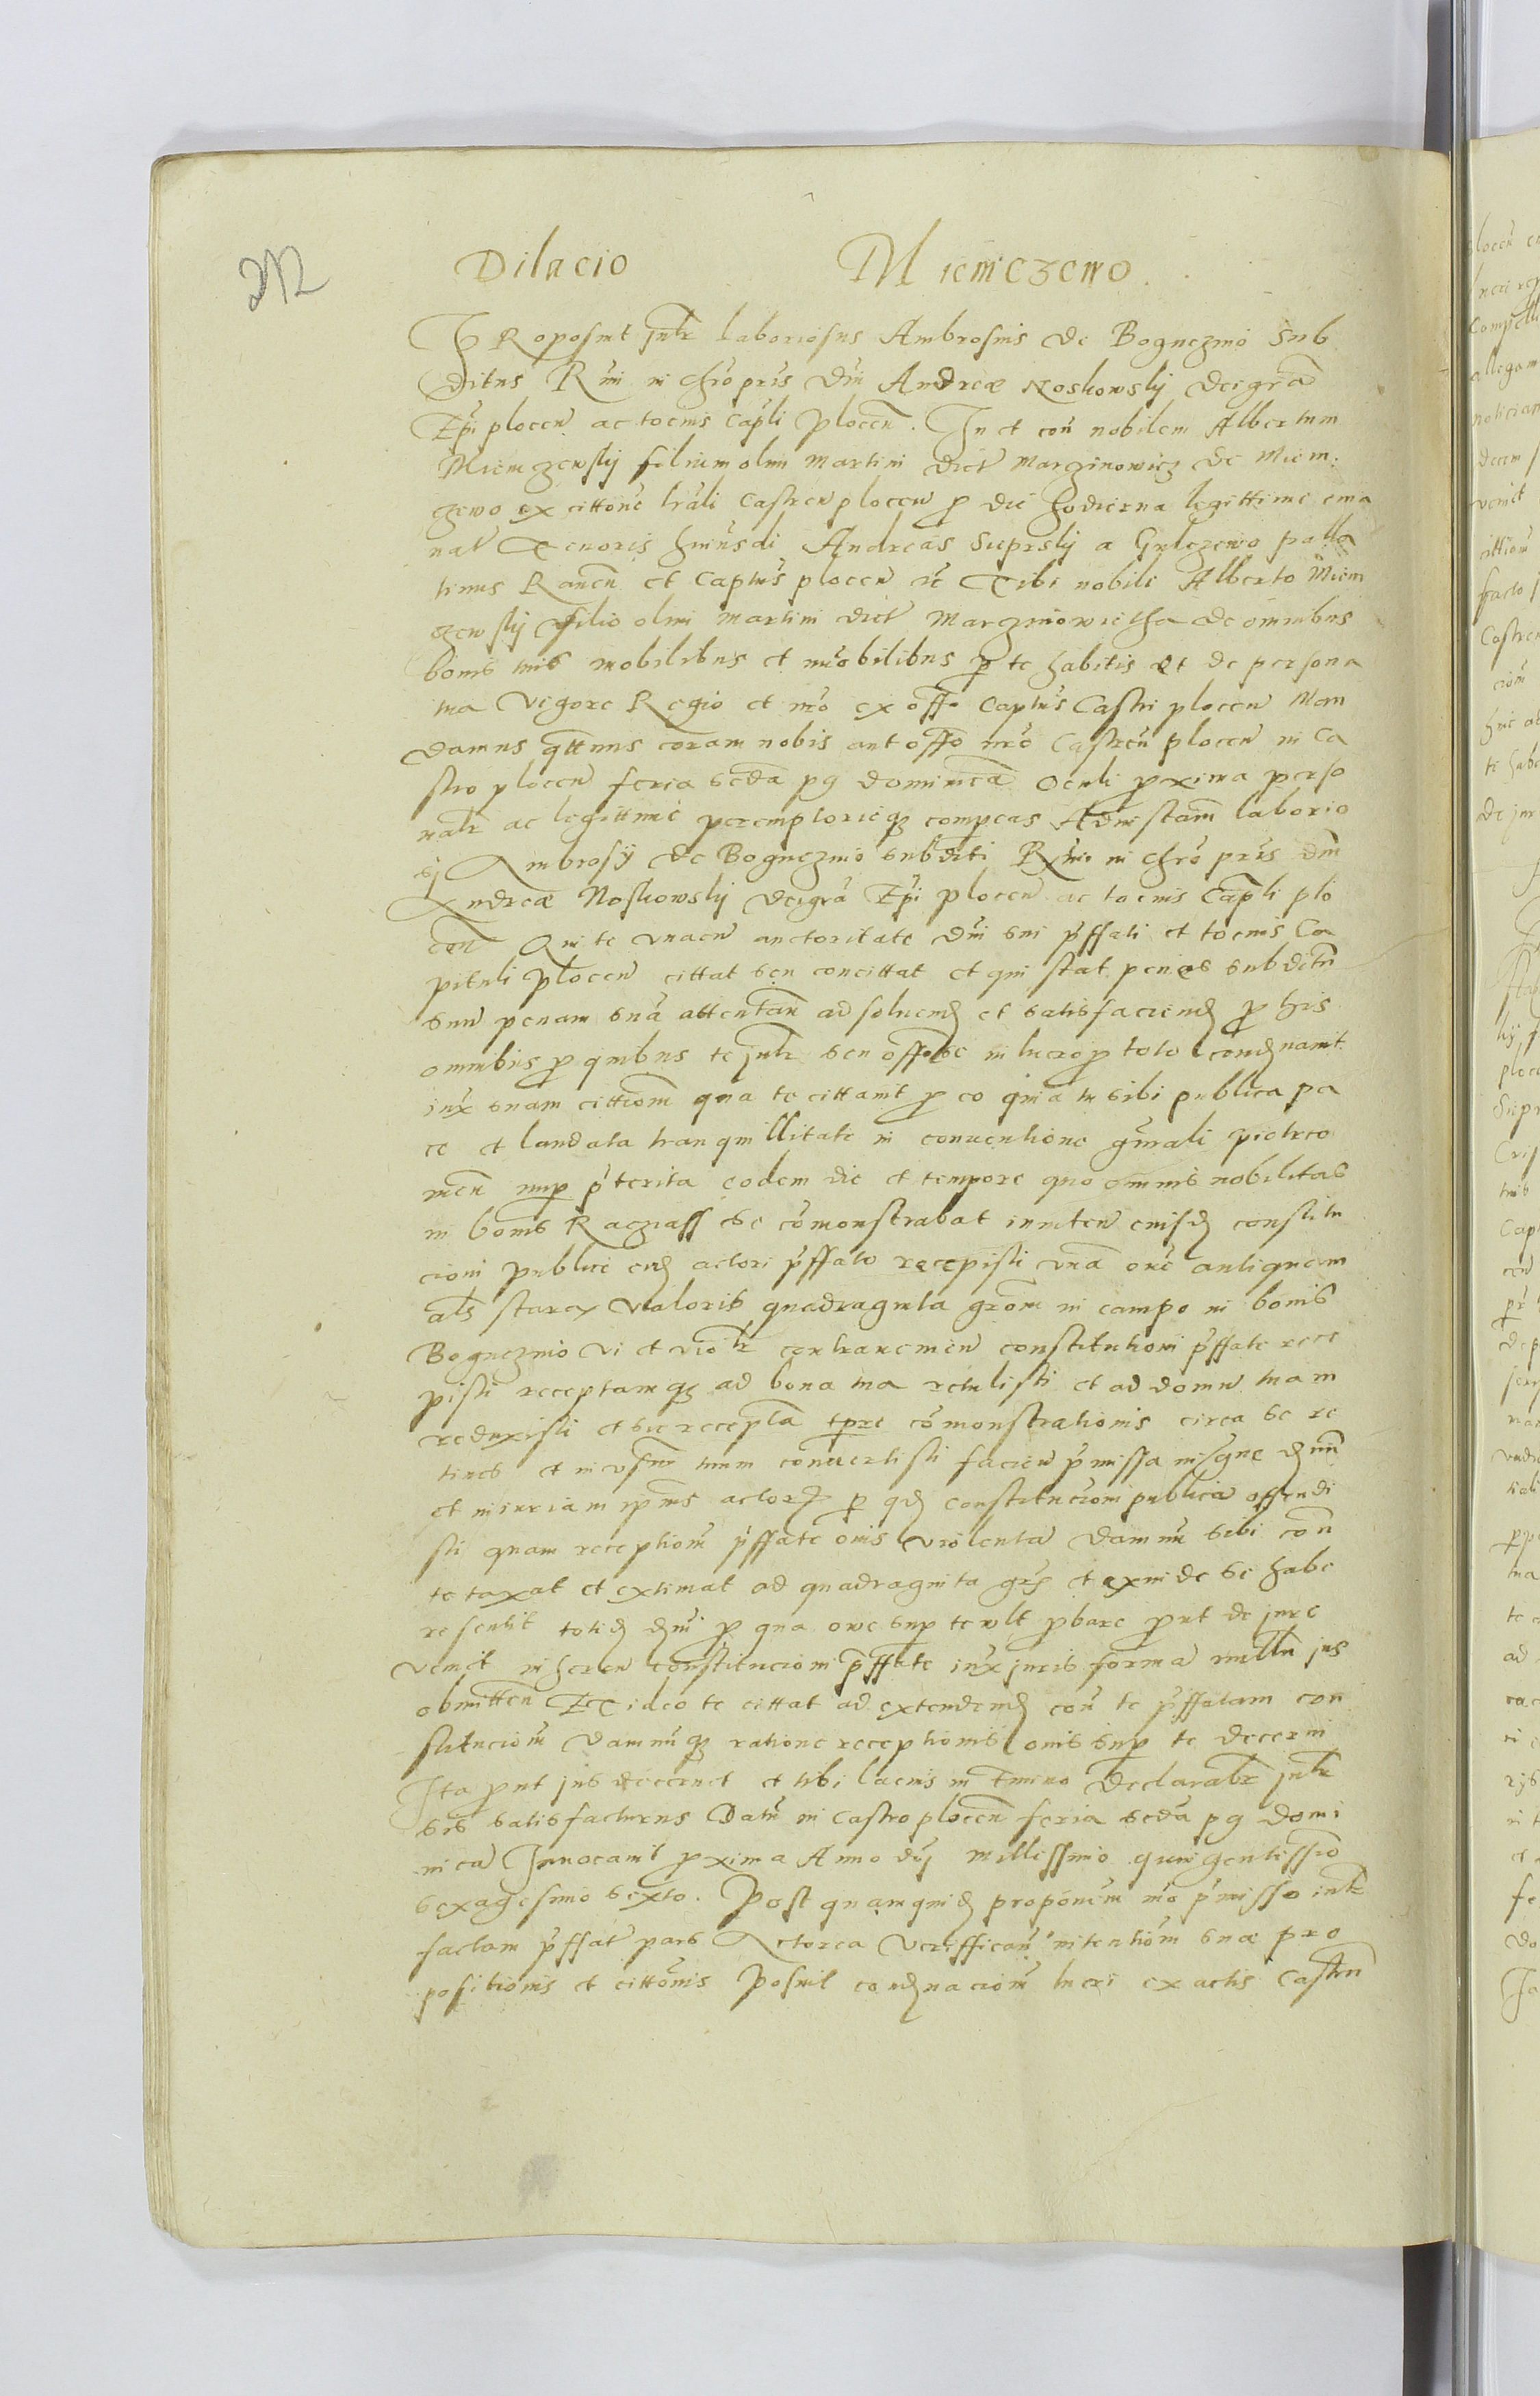 Dilacio Miemczewo
PRoposuit judr laboriosus Ambrosius de Boguczino Sub
ditus Rmi in chro pris dni Andreæ Noskowskij dei gra
Epi plocen ac tocius capli plocen. In et con nobilem Albertum
Miemczewskij filium olim Martini dict Marczinowicz de Miem
czewo ex cittone lrali Castren plocen p die hodierna legittime ema
nat Tenoris huiusdi Andreas Sieprskij a Gulczewo palla
tinus Rauen et Captus plocen rc Tibi nobili Alberto Miem
czewskij filio olim Martini dict Marczinowietha de omnibus
bonis tuis mobilibus et inmobilibus p te habitis et de persona
tua Vigore Regio et nro ex offo captus Castri plocen Man
damus qttenus coram nobis aut offo nro Castren plocen in Ca
stro plocen feria scda pg dominica Oculi pxima perso
nalr ac legittime peremptorieqz compeas Ad instam laborio
sj Ambrosij de Boguczino subditi Rmi in chro pris dni
Andreæ Noskowskij dei gra Epi plocen ac tocius Capli plo
cen Qui te vnacu auctoritate dni sui pffati et tocius Ca
pituli plocen cittat seu concittat et qui stat penes subditu
suu penam sua attentan ad soluend et satisfaciend p his
omnibus p quibus te judr seu offose in lucro p toto condnauit
iux suam cittiom qua te cittauit p eo quia tu sibi publica pa
ce et laudata tranquillitate in conuentione gnrali piotrco
uien nup pterita eodem die et tempore quo omnis nobilitas
in bonis Raczass se comonstrabat inniten euisd constitu
cioni publice eid actori pffato recepisti vna oue antiquam
als starą Valoris quadraginta grom in campo in bonis
Boguczino vi et viotr contrauenien constitutioni pffate rece
pisti receptamqz ad bona tua retulisti et ad domu tuam
reduxisti et sic recepta tpre comonstrationis circa se re
tines et in vsum tuum conuertisti facien pmissa in signe dnu
et iniuriam ipius actors p qd constitucioni publica offendi
sti quam receptiom pffate ouis violenta damnu sibi con
te taxat et extimat ad quadraginta grs et exinde se habe
re sentit totid dni p qua oue sup te vlt pbare put de jure
venit inheren constitucioni pffate iux juris forma nullu jus
obmitten Et ideo te cittat ad extendend con te pffatam con
stituciom damnuqz ratione receptionis ouis sup te decerni
Ita put jus decernet et tibi lacius in tmino declarabr judr
sis satisfacturus Datu in Castro plocen feria scda pg domi
nica Inuocauit pxima Anno dnj millesimo quingentesimo
sexagesimo sexto. Post quamquid proponem nro pmisso indr
factam pffat pars Actorea Verifficans intentiom suæ pro
positionis et cittonis Posuit condnaciom lucri ex actis Castren